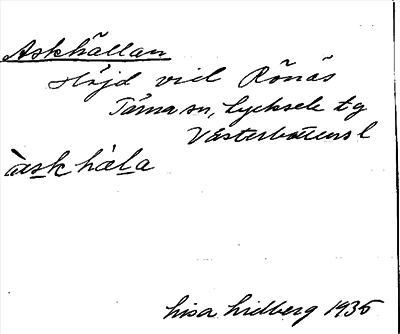 Askhällan
Höjd vid Rönäs
Tärna sn, Lycksele tg
Västerbottens l
àsk hàla
Lisa Lidberg 1936